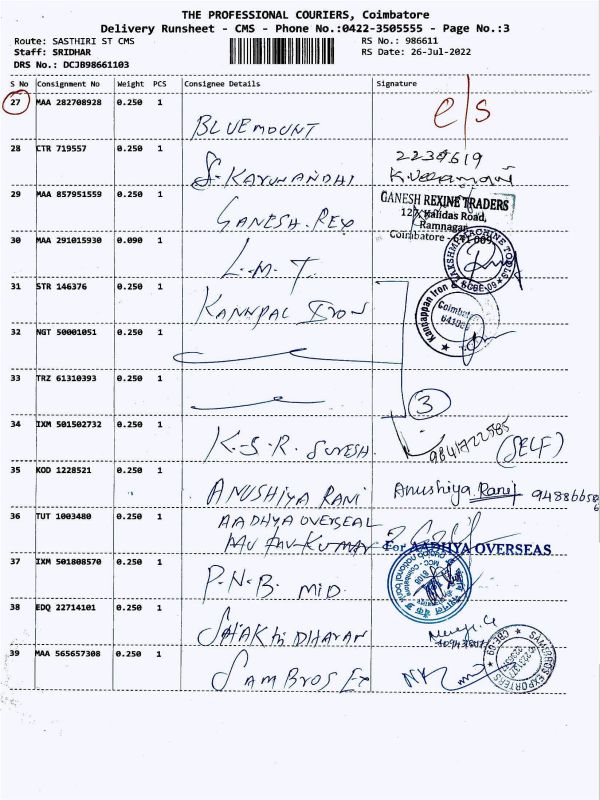 THE PROFESSIONAL COURIERS, Coimbatore
Delivery Runsheet - CMS - Phone No.:0422-3505555 - Page No.:3
Route: SASTHIRI ST CMS RS No.: 986611
Staff: SRIDHAR RS Date: 26-Jul-2022
DRS No.: DCJB98661103
S No Consignment No Weight PCS Consignee Details Signature
27 MAA 282708928 0.250 1 BLUEMOUNT e/s
28 CTR 719557 0.250 1 S. KARUNANDHI
29 MAA 857951559 0.250 1 GANESH. REX
GANESH REXINE TRADERS
127, Kalidas Road,
Ramnagar,
Coimbatore - 641 009.
30 MAA 291015930 0.090 1 L.M.T.
LAKSHMI MACHINE TOOLS
CBE-09
31 STR 146376 0.250 1 KANNPAL IRON
Kannappan Iron &
Coimbatore
32 NGT 50001051 0.250 1
33 TRZ 61310393 0.250 1
3
34 IXM 501502732 0.250 1 K.S.R. SURESH. 9841722585 (SELF)
35 KOD 1228521 0.250 1 ANUSHIYA RANI Anushiya Rani
36 TUT 1003480 0.250 1 AADHYA OVERSEAL
For AADHYA OVERSEAS
37 IXM 501808570 0.250 1 P.N.B. MID
38 EDQ 22714101 0.250 1 SHAKTHIDHARAN
39 MAA 565657308 0.250 1 SAMBROS EX
SAMBROS EXPORTERS
CBE-09